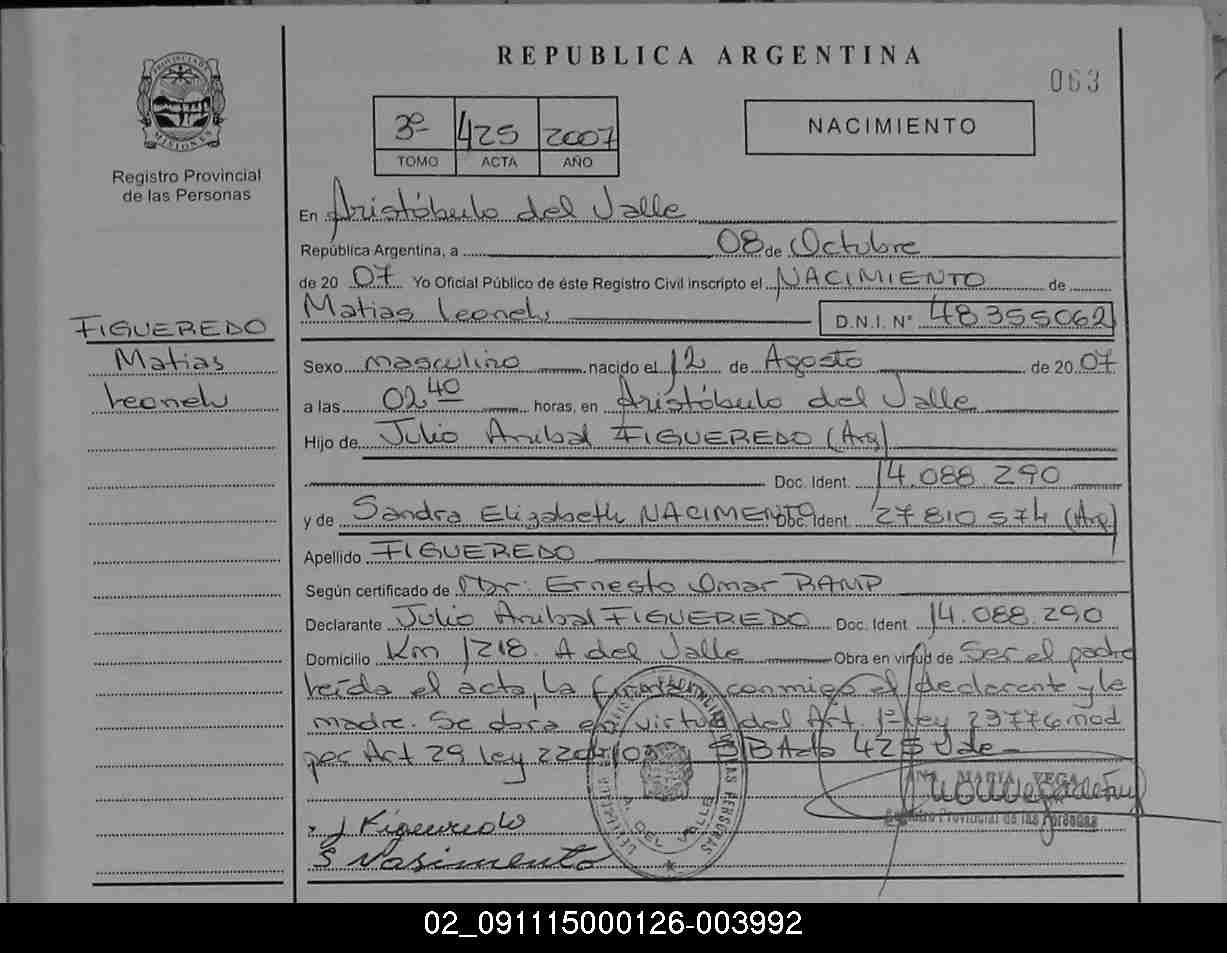 REPUBLICA ARGENTINA
063
PROVINCIA DE MISIONES
Registro Provincial
de las Personas
3º 425 2007
TOMO ACTA AÑO
NACIMIENTO
En Aristóbulo del Valle
República Argentina, a 08 de Octubre
de 20 07 Yo Oficial Público de éste Registro Civil inscripto el NACIMIENTO de
Matias Leonel D.N.I. Nº 48355062
FIGUEREDO
Matias
Leonel
Sexo masculino nacido el 12 de Agosto de 20 07
a las 02 40 horas, en Aristóbulo del Valle
Hijo de Julio Anibal FIGUEREDO (Arg)
Doc. Ident. 14.088.290
y de Sandra Elizabeth NACIMENTO Doc. Ident. 27 810 574 (Arg)
Apellido FIGUEREDO
Según certificado de Dr: Ernesto Omar RAMP
Declarante Julio Anibal FIGUEREDO Doc. Ident. 14.088.290
Domicilio Km 1218. A del Valle Obra en virtud de Ser el padre
Leída el acta, la conmigo el declarante y la
madre. Se obra en virtud del Art. 1º ley 23776 mod
por Art 29 ley Acta 425 Vale
ANA MARIA VEGA
Registro Provincial de las Personas
J Figueredo
S Nasimento
A. DEL VALLE
02_091115000126-003992